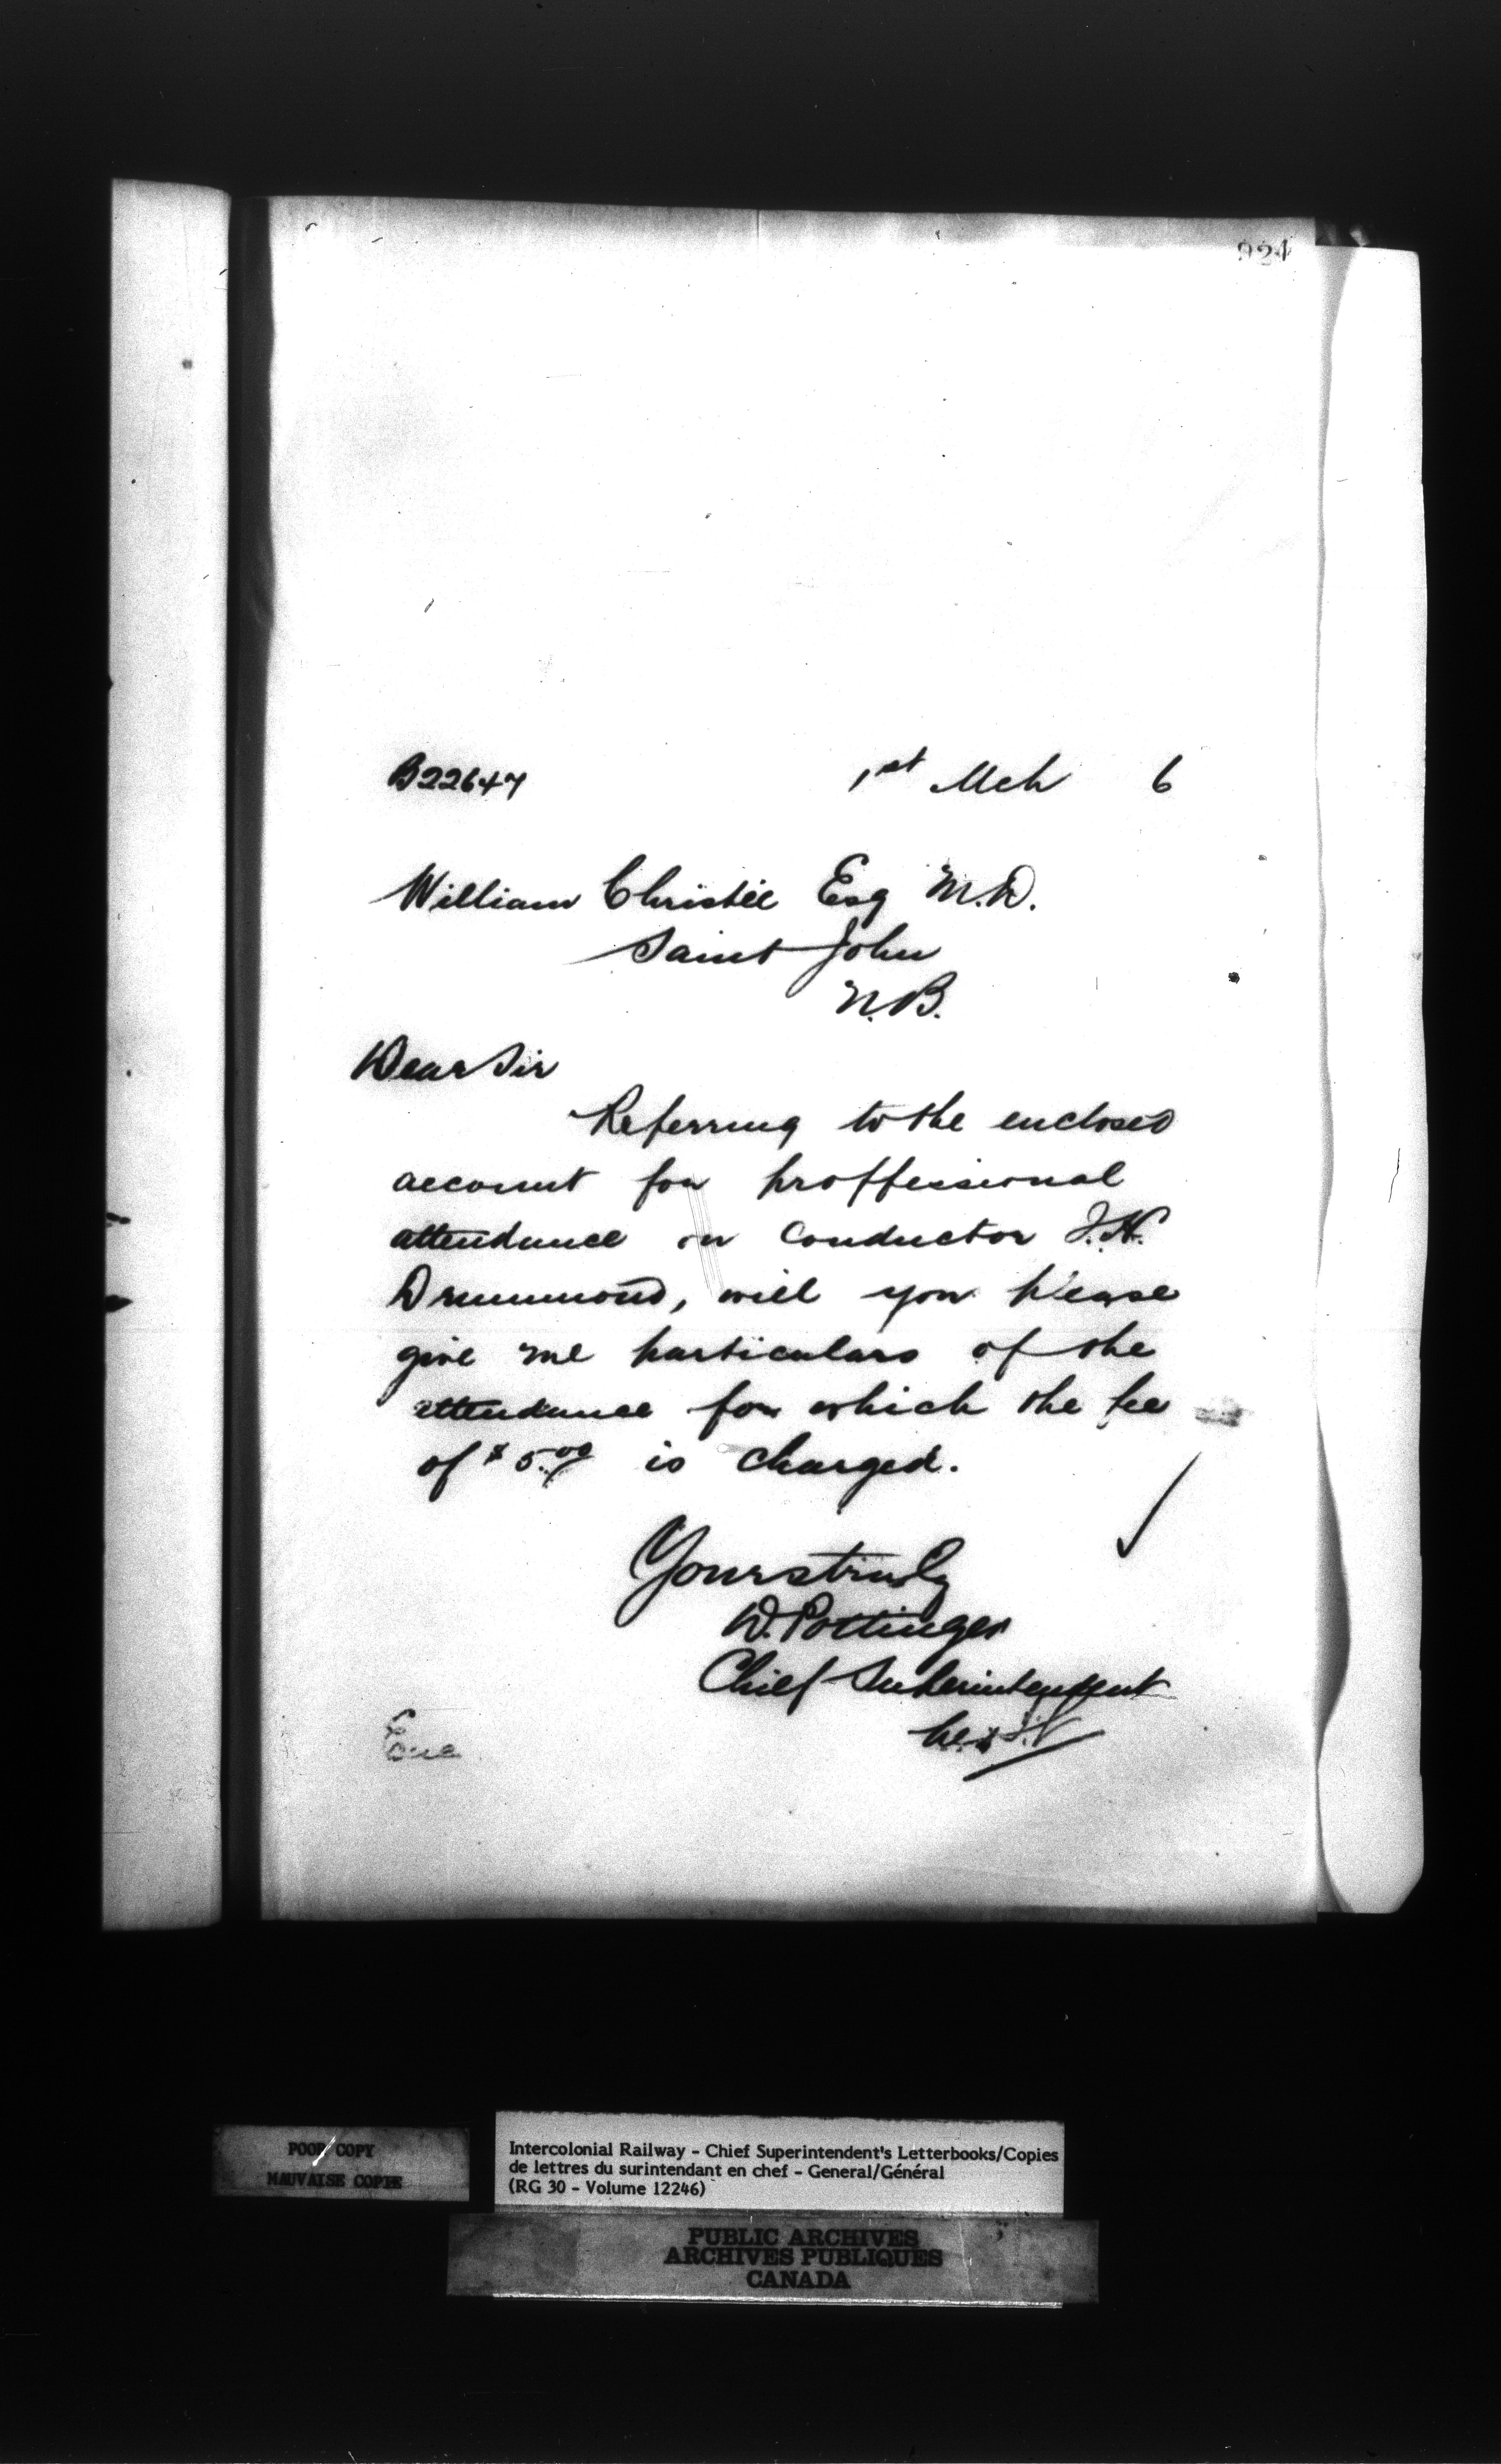 924
B22647 1st Mch 6
William Christie Esq M.D.
Saint John
N.B.
Dear Sir
Referring to the enclosed
account for proffessional
attendance on Conductor J.H.
Drummond, will you please
give me particulars of the
attendance for which the fee
of $5.00 is charged.
Yours truly
D. Pottinger
Chief Superintendent
Enc
POOR COPY
MAUVAISE COPIE
Intercolonial Railway - Chief Superintendent's Letterbooks/Copies
de lettres du surintendant en chef - General/Général
(RG 30 - Volume 12246)
PUBLIC ARCHIVES
ARCHIVES PUBLIQUES
CANADA